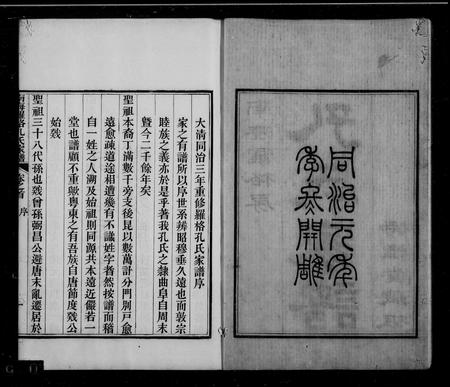 同治元年
季冬開雕
大清同治三年重修羅格孔氏家譜序
家之有譜所以序世系辨昭穆垂久遠也而敦宗
睦族之義亦於是乎著我孔氏之隸曲阜自周末
暨今二千餘年矣
聖祖本裔丁滿數千旁支後昆以數萬計分門別戶愈
遠愈疏道途相遭幾有不識姓字者然按譜而稽
自一姓之人溯及始祖則同源共本遠近儼若一
堂也譜顧不重歟粵東之有吾族自唐節度戣公
始戣
聖祖三十八代孫也戣曾孫昌弼公避唐末亂遷居於
南海羅格孔氏家譜
卷之首
序